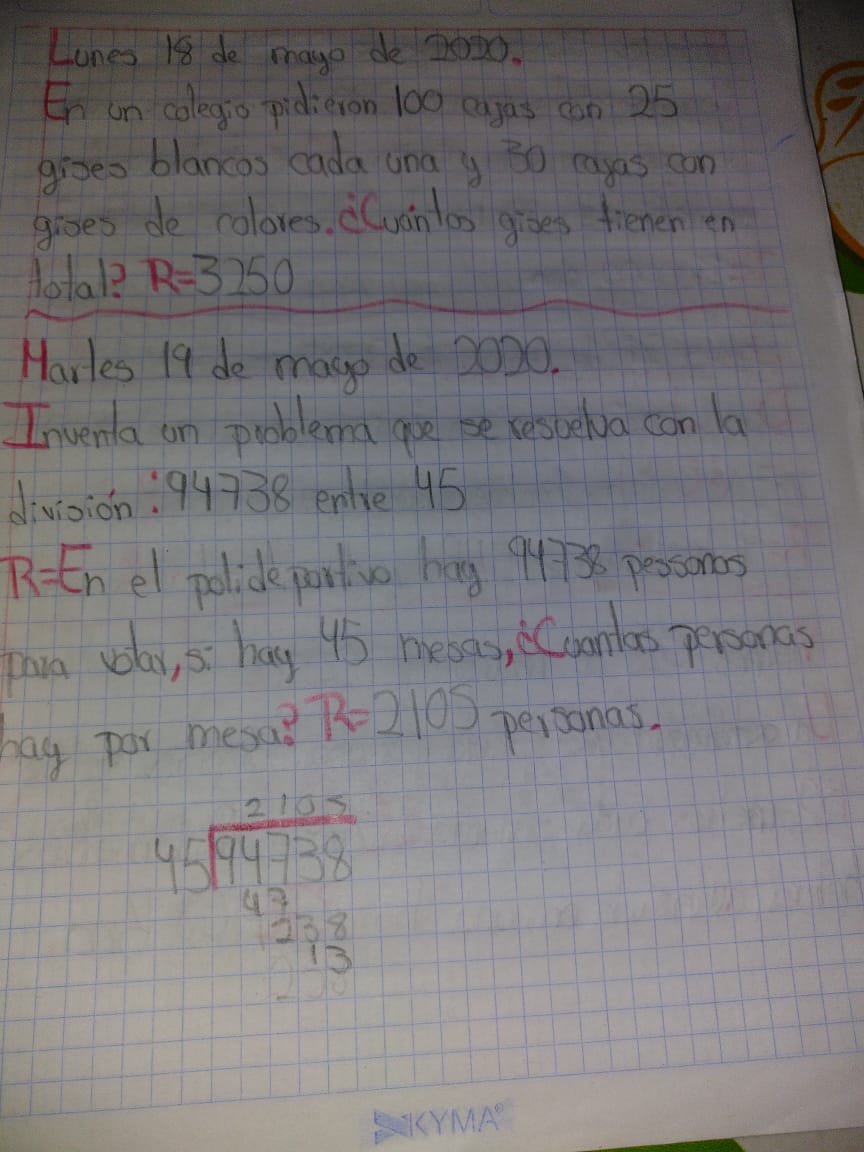 Lunes 18 de mayo de 2020.
En un colegio pidieron 100 cajas con 25
gises blancos cada una y 30 cajas con
gises de colores. ¿Cuántos gises tienen en
total? R=3250
Martes 19 de mayo de 2020.
Inventa un problema que se resuelva con la
división: 94738 entre 45
R=En el polideportivo hay 94738 personas
para votar, si hay 45 mesas, ¿Cuantas personas
hay por mesa? R=2105 personas.
2105
45 94738
47
238
13
KYMA